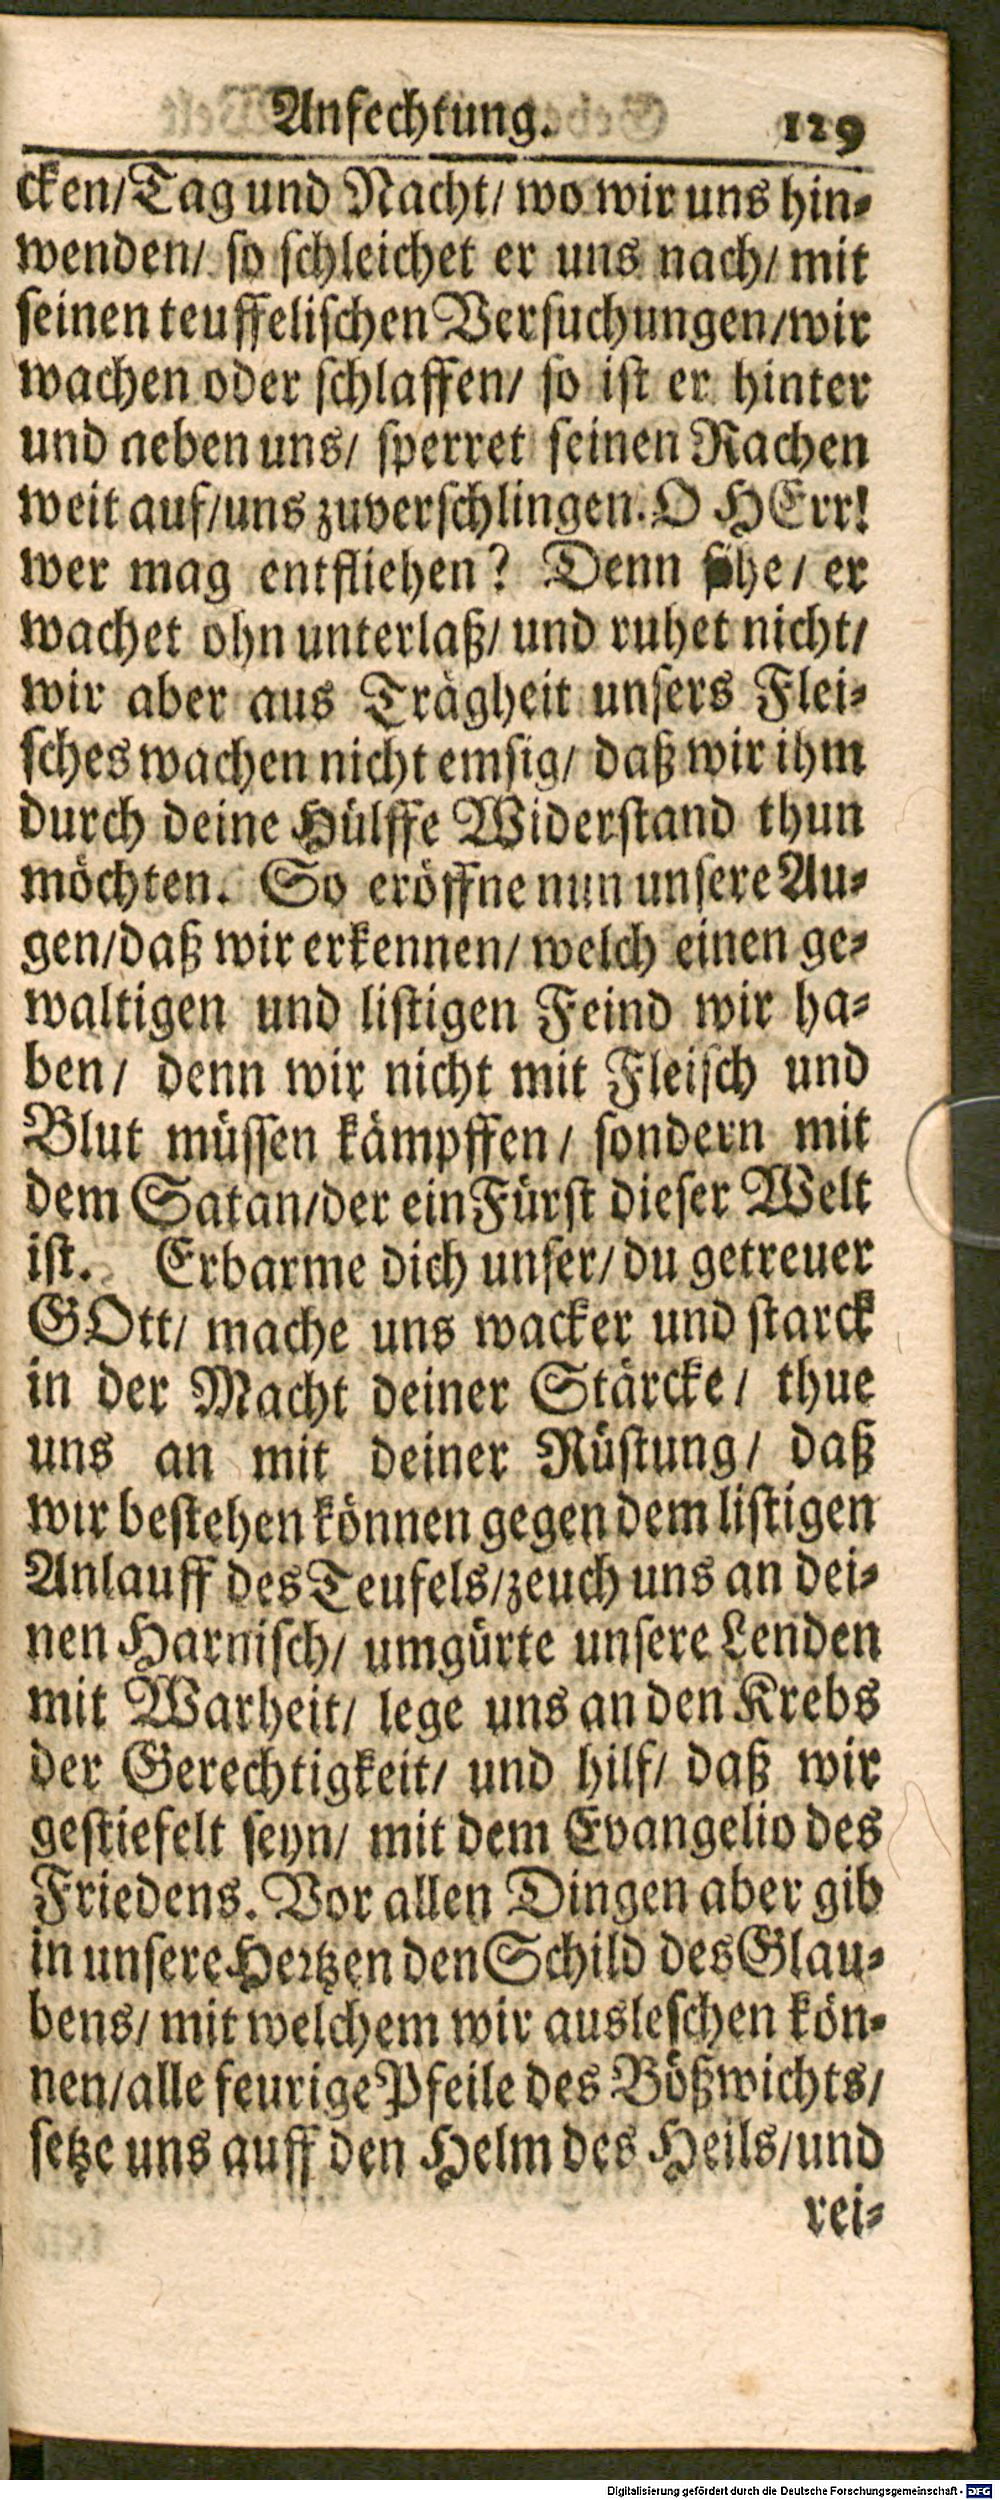 Anfechtung. 129
cken/Tag und Nacht/ wo wir uns hin-
wenden/ so schleichet er uns nach/ mit
seinen teuffelischen Versuchungen/wir
wachen oder schlaffen/ so ist er hinter
und neben uns/ sperret seinen Rachen
weit auf/uns zuverschlingen. O HErr!
wer mag entfliehen? Denn / er
wachet ohn unterlaß/ und ruhet nicht/
wir aber aus Trägheit unsers Flei-
sches wachen nicht emsig/ daß wir ihm
durch deine Hülffe Widerstand thun
möchten. So eröffne nun unsere Au-
gen/daß wir erkennen/ welch einen ge-
waltigen und listigen Feind wir ha-
ben/ denn wir nicht mit Fleisch und
Blut müssen kämpffen/ sondern mit
dem Satan/der ein Fürst dieser Welt
ist. Erbarme dich unser/ du getreuer
GOtt/ mache uns wacker und starck
in der Macht deiner Stärcke/ thue
uns an mit deiner Rüstung/ daß
wir bestehen können gegen dem listigen
Anlauff des Teufels/zeuch uns an dei-
nen Harnisch/ umgürte unsere Lenden
mit Warheit/ lege uns an den Krebs
der Gerechtigkeit/ und hilf/ daß wir
gestiefelt seyn/ mit dem Evangelio des
Friedens. Vor allen Dingen aber gib
in unsere Hertzen den Schild des Glau-
bens/ mit welchem wir ausleschen kön-
nen/alle feurige Pfeile des Bößwichts/
setze uns auff den Helm des Heils/und
rei-
Digitalisierung gefördert durch die Deutsche Forschungsgemeinschaft - DFG